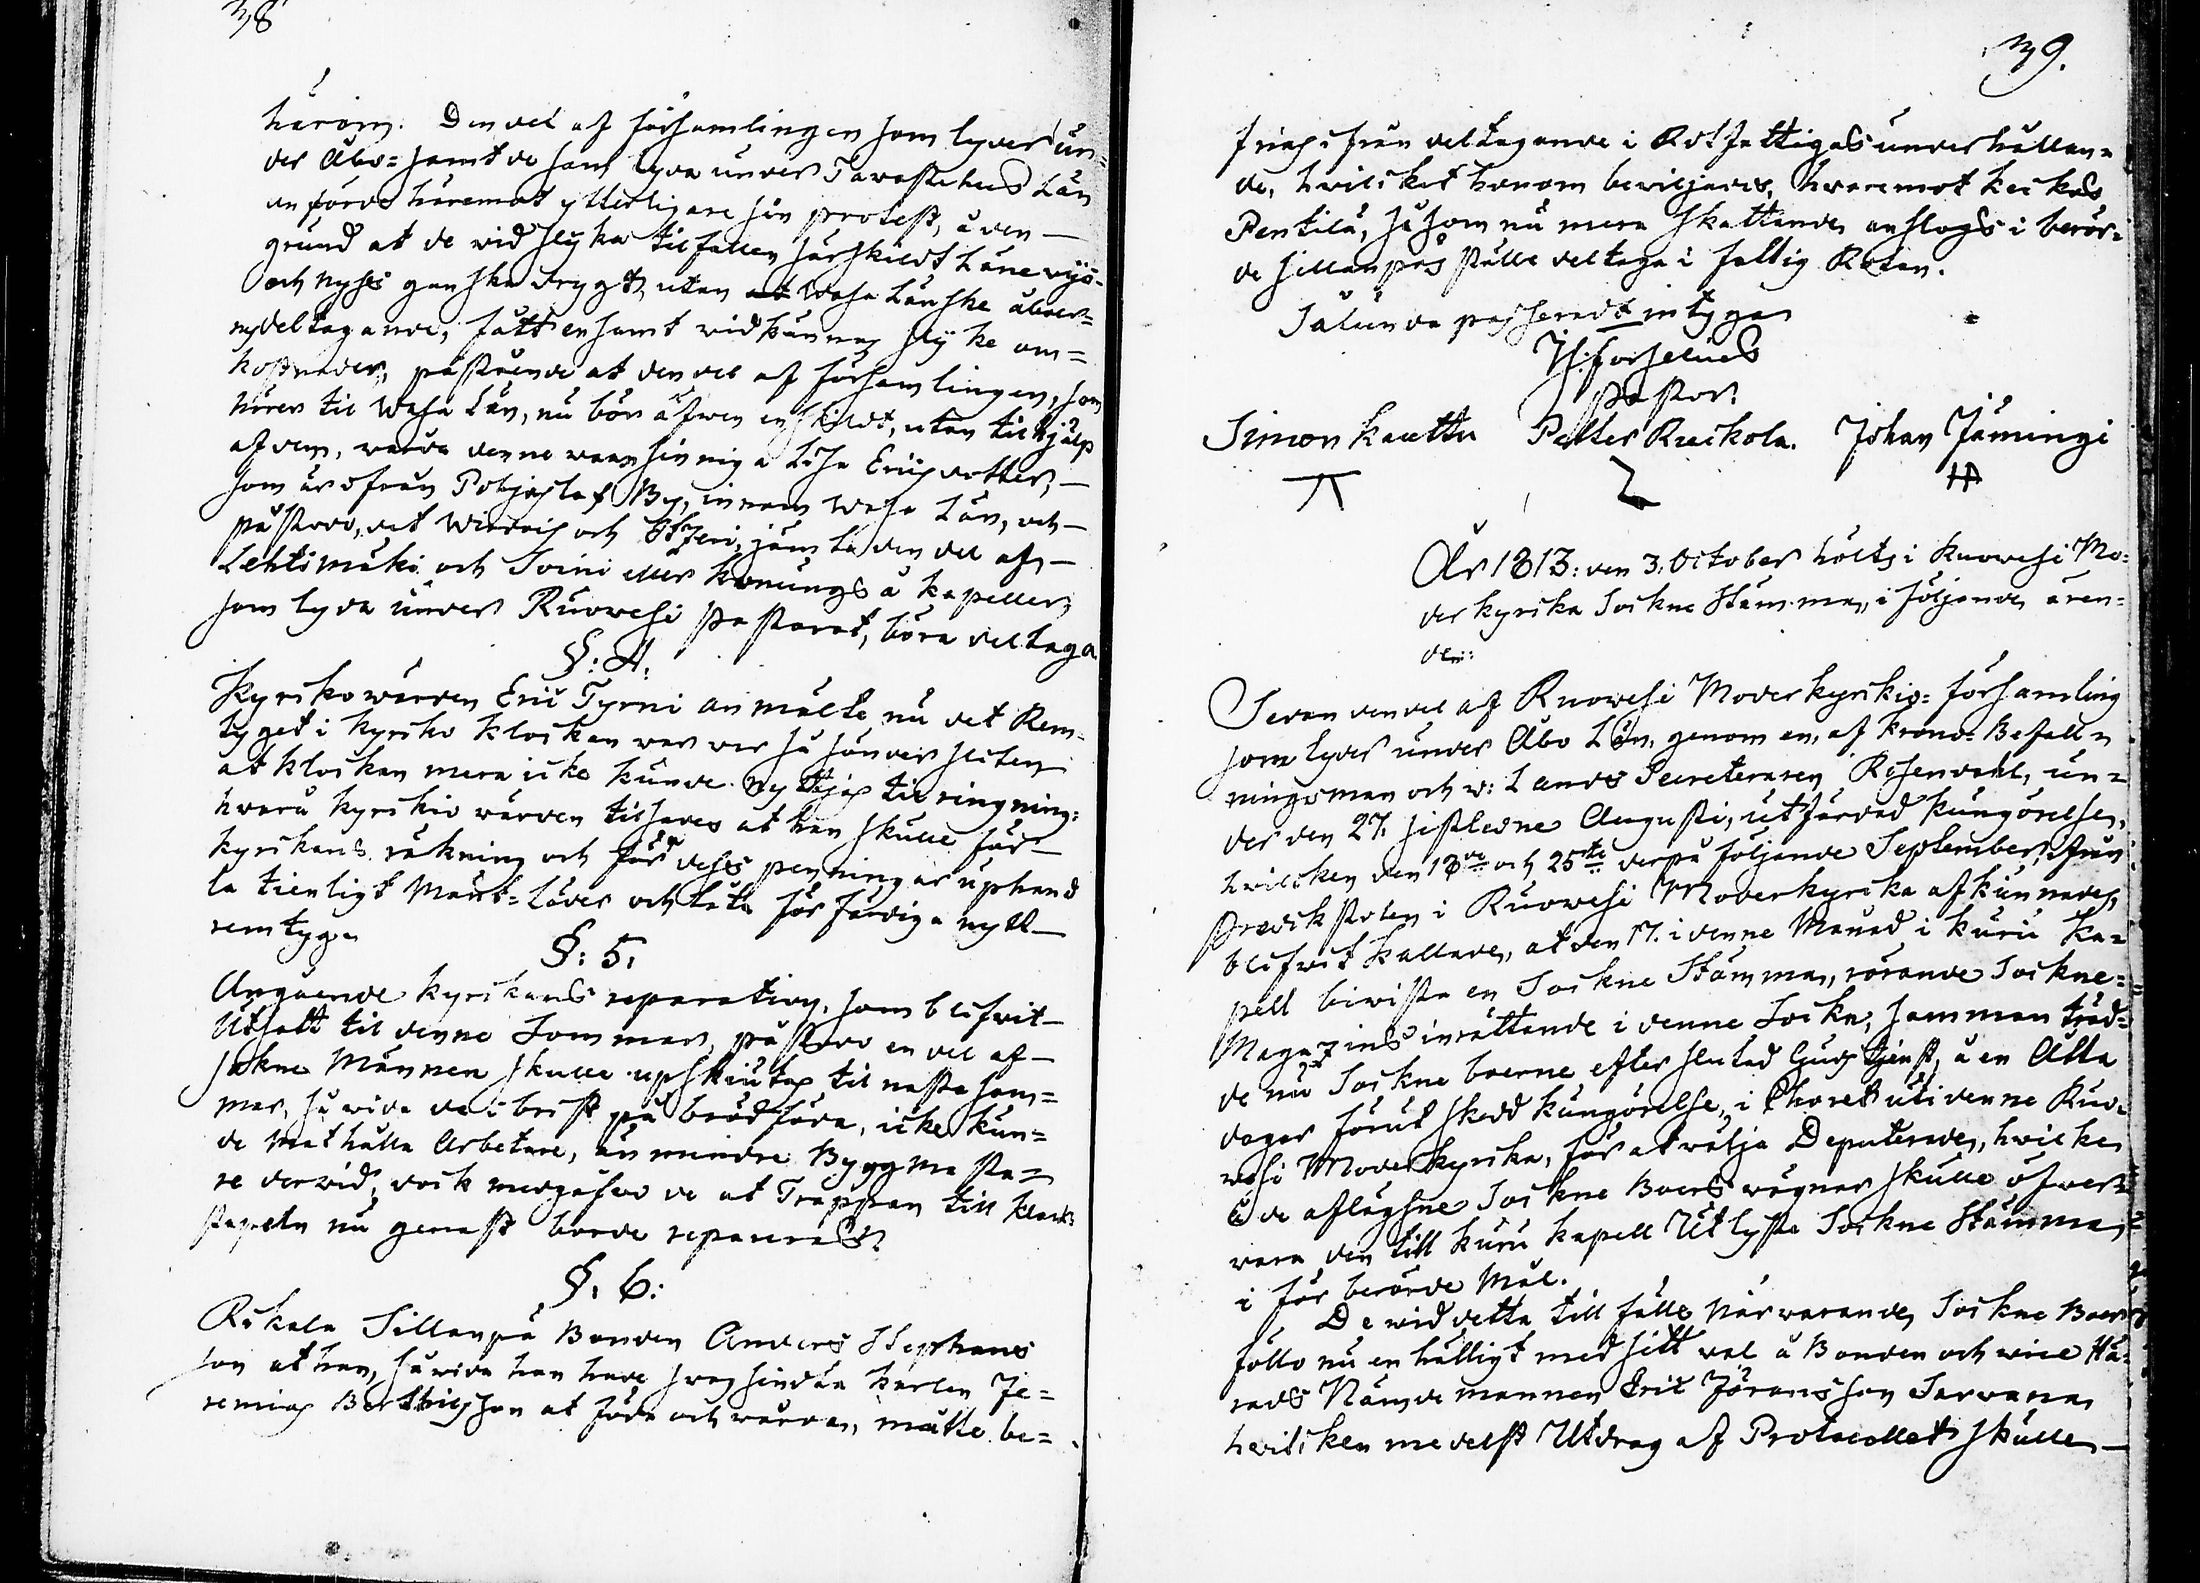 38
härom. Den del af församlingen som lyder un=
der Åbo= samt de som lyda under Tawastehus Län
anförde häremot ytterligare sin protest, å den
grund at de wid slyka tilfällen särskildt Länewijs
och nysses ganska drygt, utan at Wasa Länske åboer=
nes deltagande, fått ensamt widkännas slyke om=
kostnader, påstående at den del af församlingen, som
hörer til Wasa Län, nu bör äfwen enskildt, utan tilhjälp
af dem, wårda denne wansinniga Lisa Ericsdotter,
som är ifrån Pohjaslax By, innom Wasa Län, och
påstodo, at Wirdois och Etzeri, jämte den del af
Lehtimäki och Soini eller Konungså kapeller,
som lyda under Ruowesi Pastorat, böra deltaga
§: 4.
Kyrkowärden Eric Tyrni anmälte nu det Rem=
tyget i kyrko klockan war så sönder sliten
at klockan mera icke kunde nyttjas til ringning:
hwarå kyrkio wärden tilsades at han skulle för
kyrkans räkning och för dess penningar uphand
la tienligt Märk=Läder och låta förfärdiga nytt
remtyg.
§: 5.
Angående kyrkans reparation, som blifwit
Utsatt til denne Sommar, påstodo en del af
Sokne Männen skulle upskiutas til nästa som=
mar, så wida de i brist på brödföda, icke kun=
de mathålla Arbetare, än mindre Byggmästa=
re derwid, dock medgåfwo de at Trappan till klock=
stapeln nu genast borde repareras.
§: 6:
Rikala Sillanpä Bonden Anders Stephans
son at han, så wida han hade swagsindta karlen Je=
remias Berthilsson at föda och wårda, måtte be=
39.
frias ifrån deltagande i Rotfattigas underhållan=
de, hwilcket honom bewiljades, hwaremot Keckos
Pentilä, såsom nu mera skattande anslogs i berör=
de Sillanpäs ställe deltaga i fattig Rotan.
Sålunda passeradt intygar
Js: Forselius
Pastor.
Simon Kauttu Petter Ruokola. Johan Jäminge
År 1813: den 3. October höltz i Ruowesi Mo=
der kyrka Sockne Stämma, i följande ären=
der:
Sedan den del af Ruowesi Moderkyrkio=församling
som lyder under Åbo Län, genom en, af Krono=Befall=
ningsman och v: Lands Secreteraren Rosendahl, un=
der den 27. sistledne Augusti, utfärdad kungörelse,
hwilcken den 18de och 25te derpå följande September ifrån
Predikstolen i Ruowesi Moderkyrka afkunnades,
blifwit kallade, at den 17. i denne Månad i Kuru Ka=
pell biwista en Sockne Stämma, rörande Sockne=
Magazins inrättande i denne Sockn, samman träd=
de nu Sockne boerne efter slutad Gudstjenst, å en Åtta
dagar förut skedd kungörelse, i Choret uti denne Ruo=
wesi Moderkyrka, för at wälja Deputerade, hwilke
å de aflägsne Sockne Boers wägnar skulle öfwer=
wara den till Kuru kapell Utlyste Sockne Stämma,
i förberörde Mål.
De wid detta tillfälle närwarande Sockne Boer
föllo nu enhälligt med sitt wal å Bonden och wice Hä=
rads Nämdemannen Eric Jöransson Sarwana
hwilcken medelst Utdrag af Protocollet skulle